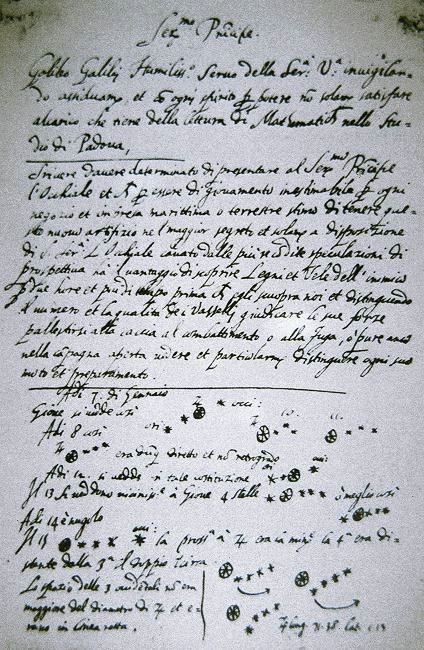 Ser.mo Pricipe.
Galileo Galilej Humiliss.o Servo della Ser.a V.a invigilan-
do assiduam.te, et cō ogni spirito p potere nō solam.te satisfare
al carico che tiene della lettura di Mathematich nello Stu-
dio di Padova,
Scrivere d'avere determinato di presentare al Ser.mo Pricipe
l'Ochiale et p essere di giovamento inestimabile p ogni
negozio et impresa marittima o terrestre stima di tenere que-
sto nuovo artifizio ne'l maggior segreto et solam.te a disposizione
di S. Ser.a L'Ochiale cavato dalle più recōdite speculazioni di
prospettiva ha il vantaggio di scoprire Legni et Vele dell'inimico
p due hore et più di tempo prima ch' egli scuopra noi et distinguendo
il numero et la qualità de i Vasselli giudicare le sue forze
pallestirsi alla caccia al combattimento o alla fuga, o pure anco
nella cāpagna aperta vedere et particolarm.te distinguere ogni suo
moto et preparamento.
Adi 7. di Gennaio
Giove si vede così
Adi 8 così
era dūq diretto et nō retrogrado
Adi 12. si vedde in tale costituzione
Il 13 si veddono vicinissime à Giove 4 stelle o meglio così
Adi 14 è nugolo
Il 15 la pross.a à 4 era la min.e la 4.a era di-
stante dalla 3.a il doppio
Lo spazio delle 3 occidētali nō era
maggiore del diametro di 4 et e-
rano in linea retta.